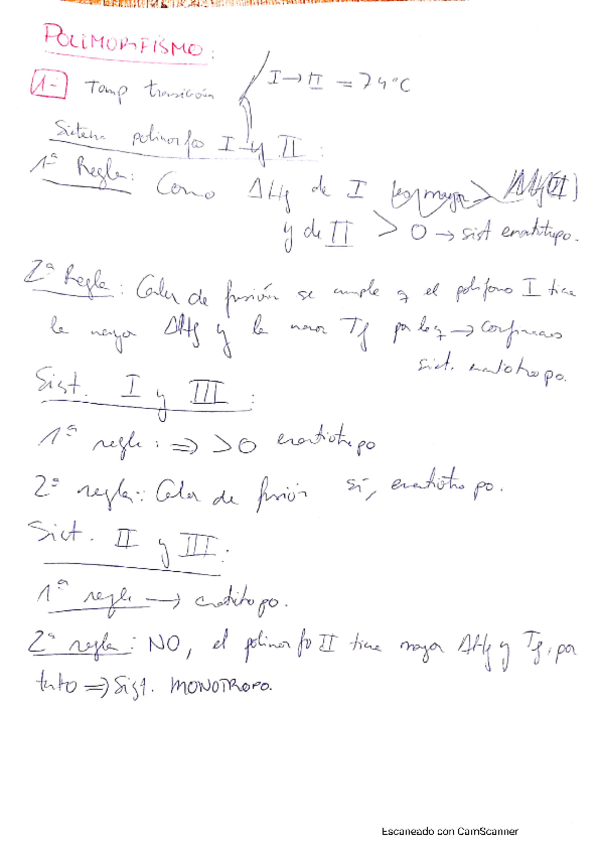 POLIMORFISMO:
1- Temp transición I → II = 74°C
Sistema polimorfos I y II :
1ª Regla: Como ΔHf de I es mayor > ΔHf(II)
y de II > 0 → sist enantiótropo.
2ª Regla: Calor de fusión se cumple q el polifomo I tiene
la mayor ΔHf y la menor Tf por lo q → confirmamos
sist. enantiotropo.
Sist. I y III :
1ª regla: ⇒ >0 enantiotropo
2ª regla: Calor de fusión sí, enantiotropo.
Sist. II y III.
1ª regla → enantiotropo.
2ª regla: NO, el polimorfo II tiene mayor ΔHf y Tf, por
tanto ⇒ Sist. MONOTROPO.
Escaneado con CamScanner